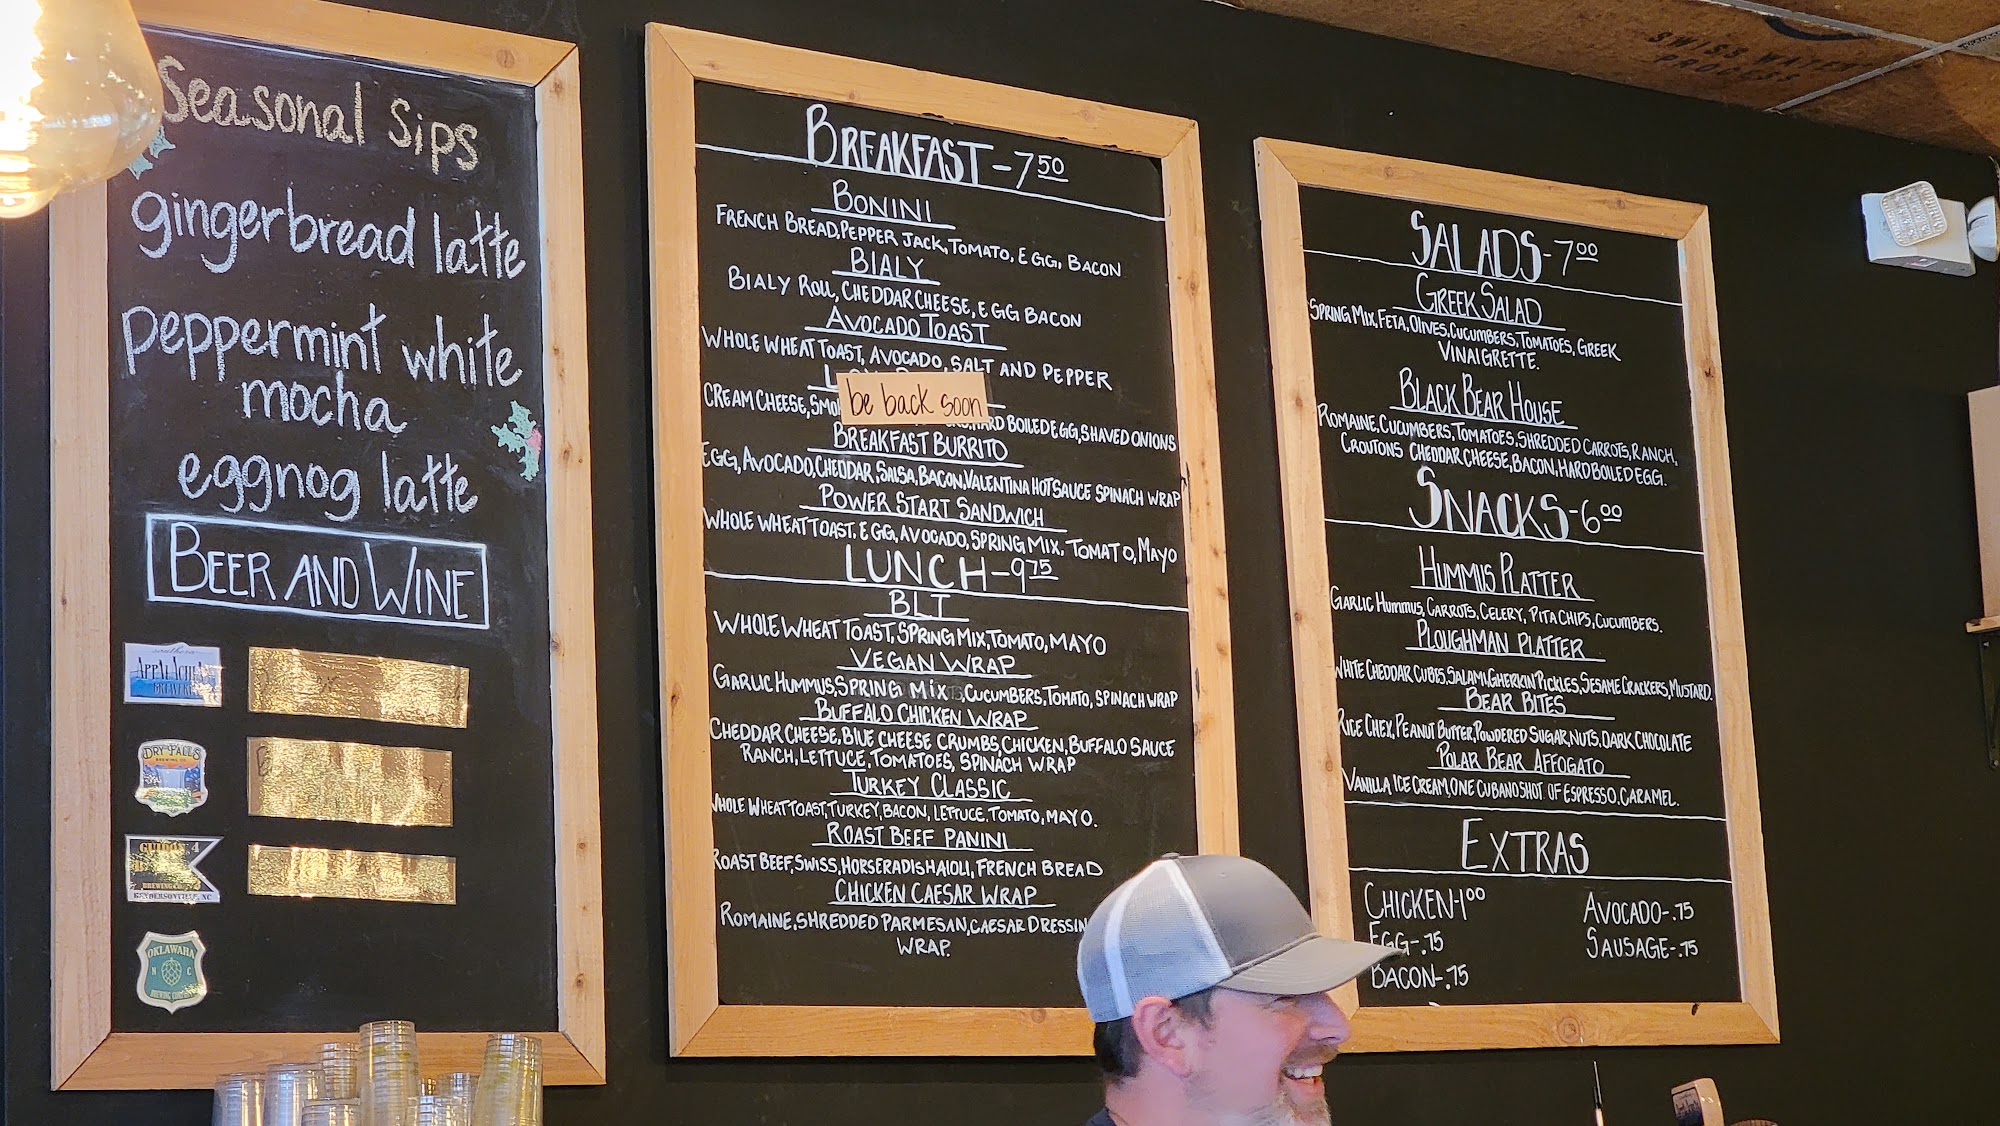 Seasonal Sips
gingerbread latte
peppermint white
mocha
eggnog latte
BEER AND WINE
APPALACHIAN
DRY FALLS
BREWING CO.
GUIDON
BREWING CO
HENDERSONVILLE, NC
OKLAWAHA
N C
BREWING COMPANY
BREAKFAST-7 50
BONINI
FRENCH BREAD, PEPPER JACK, TOMATO, EGG, BACON
BIALY
BIALY ROLL, CHEDDAR CHEESE, EGG BACON
AVOCADO TOAST
WHOLE WHEAT TOAST, AVOCADO, SALT AND PEPPER
be back soon
CREAM CHEESE, HARD BOILED EGG, SHAVED ONIONS
BREAKFAST BURRITO
EGG, AVOCADO, CHEDDAR, SALSA, BACON, VALENTINA HOT SAUCE SPINACH WRAP
POWER START SANDWICH
WHOLE WHEAT TOAST, EGG, AVOCADO, SPRING MIX, TOMATO, MAYO
LUNCH-9 75
BLT
WHOLE WHEAT TOAST, SPRING MIX, TOMATO, MAYO
VEGAN WRAP
GARLIC HUMMUS, SPRING MIX, CUCUMBERS, TOMATO, SPINACH WRAP
BUFFALO CHICKEN WRAP
CHEDDAR CHEESE, BLUE CHEESE CRUMBS, CHICKEN, BUFFALO SAUCE
RANCH, LETTUCE, TOMATOES, SPINACH WRAP
TURKEY CLASSIC
WHOLE WHEAT TOAST, TURKEY, BACON, LETTUCE, TOMATO, MAYO.
ROAST BEEF PANINI
ROAST BEEF, SWISS, HORSERADISH AIOLI, FRENCH BREAD
CHICKEN CAESAR WRAP
ROMAINE, SHREDDED PARMESAN, CAESAR DRESSIN
WRAP.
SWISS WATER
PROCESS
SALADS-7 00
GREEK SALAD
SPRING MIX, FETA, OLIVES, CUCUMBERS, TOMATOES, GREEK
VINAIGRETTE.
BLACK BEAR HOUSE
ROMAINE, CUCUMBERS, TOMATOES, SHREDDED CARROTS, RANCH,
CROUTONS CHEDDAR CHEESE, BACON, HARD BOILED EGG.
SNACKS-6 00
HUMMUS PLATTER
GARLIC HUMMUS, CARROTS, CELERY, PITA CHIPS, CUCUMBERS.
PLOUGHMAN PLATTER
WHITE CHEDDAR CUBES, SALAMI, GHERKIN PICKLES, SESAME CRACKERS, MUSTARD.
BEAR BITES
RICE CHEX, PEANUT BUTTER, POWDERED SUGAR, NUTS, DARK CHOCOLATE
POLAR BEAR AFFOGATO
VANILLA ICE CREAM, ONE CUBANO SHOT OF ESPRESSO, CARAMEL.
EXTRAS
CHICKEN-1 00
EGG-.75
BACON-.75
AVOCADO-.75
SAUSAGE-.75